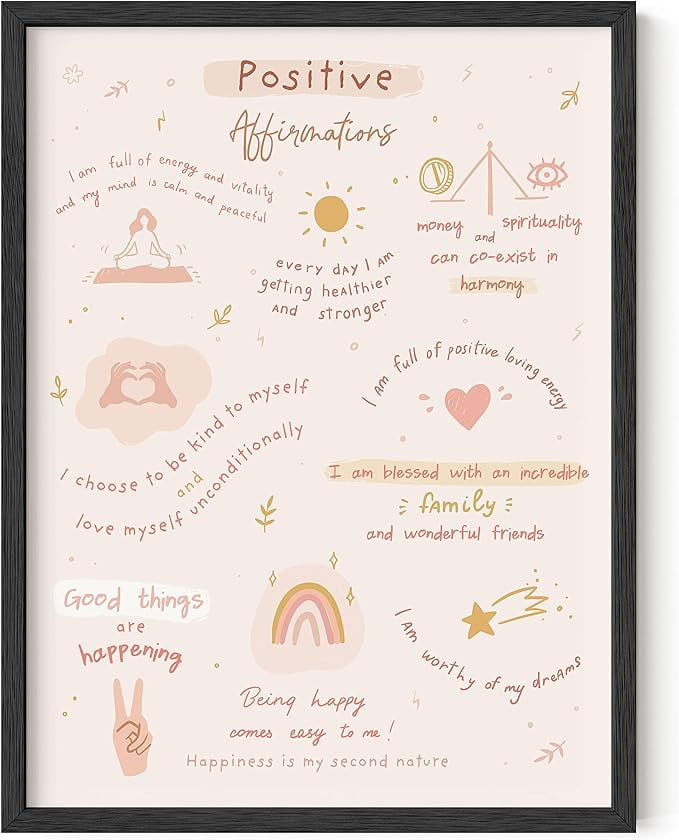 Positive
Affirmations
I am full of energy and vitality
and my mind is calm and peaceful
every day I am
getting healthier
and stronger
money and spirituality
can co-exist in
harmony
I am full of positive loving energy
I choose to be kind to myself
and
love myself unconditionally
I am blessed with an incredible
family
and wonderful friends
Good things
are
happening
Being happy
comes easy to me!
Happiness is my second nature
I am worthy of my dreams